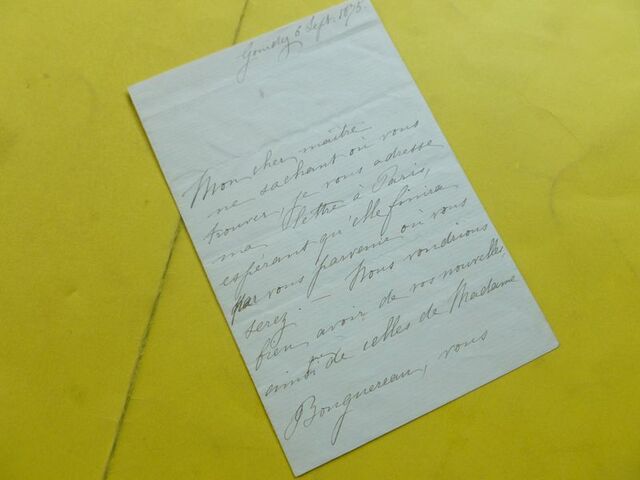 6 Sept. 1875.
Mon cher maître
ne sachant où vous
trouver, je vous adresse
ma lettre à Paris,
espérant qu'elle finira
par vous parvenir où vous
serez. — Nous voudrions
bien avoir de vos nouvelles,
ainsi que de celles de Madame
Bouguereau, vous